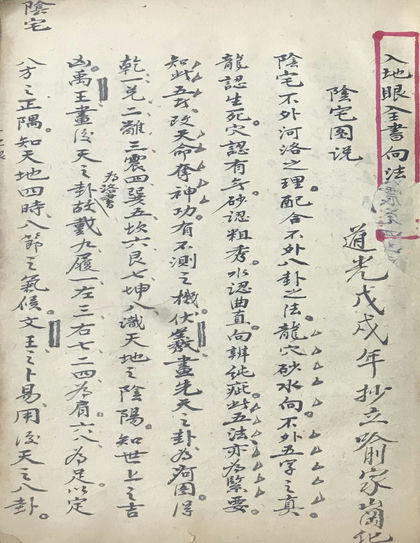 入地眼全書向法
道光戊戌年抄立喻家崗化
陰宅图说
陰宅不外河洛之理配合不外八卦之法龍穴砂水向不外五字之真
龍認生死穴認有气砂認粗秀水認曲直向辨純疵此五法亦為緊要
知此五武改天命奪神功有不測之機伏羲畫先天之卦為河图淂
乾一兑二離三震四巽五坎六艮七坤八識天地之陰陽知世上之吉
凶禹王畫後天之卦故戴九履一左三右七二四為肩六八為足以定
為洛書
八方之正隅知天地四時八節之氣候文王之卜易用後天之八卦
陰宅